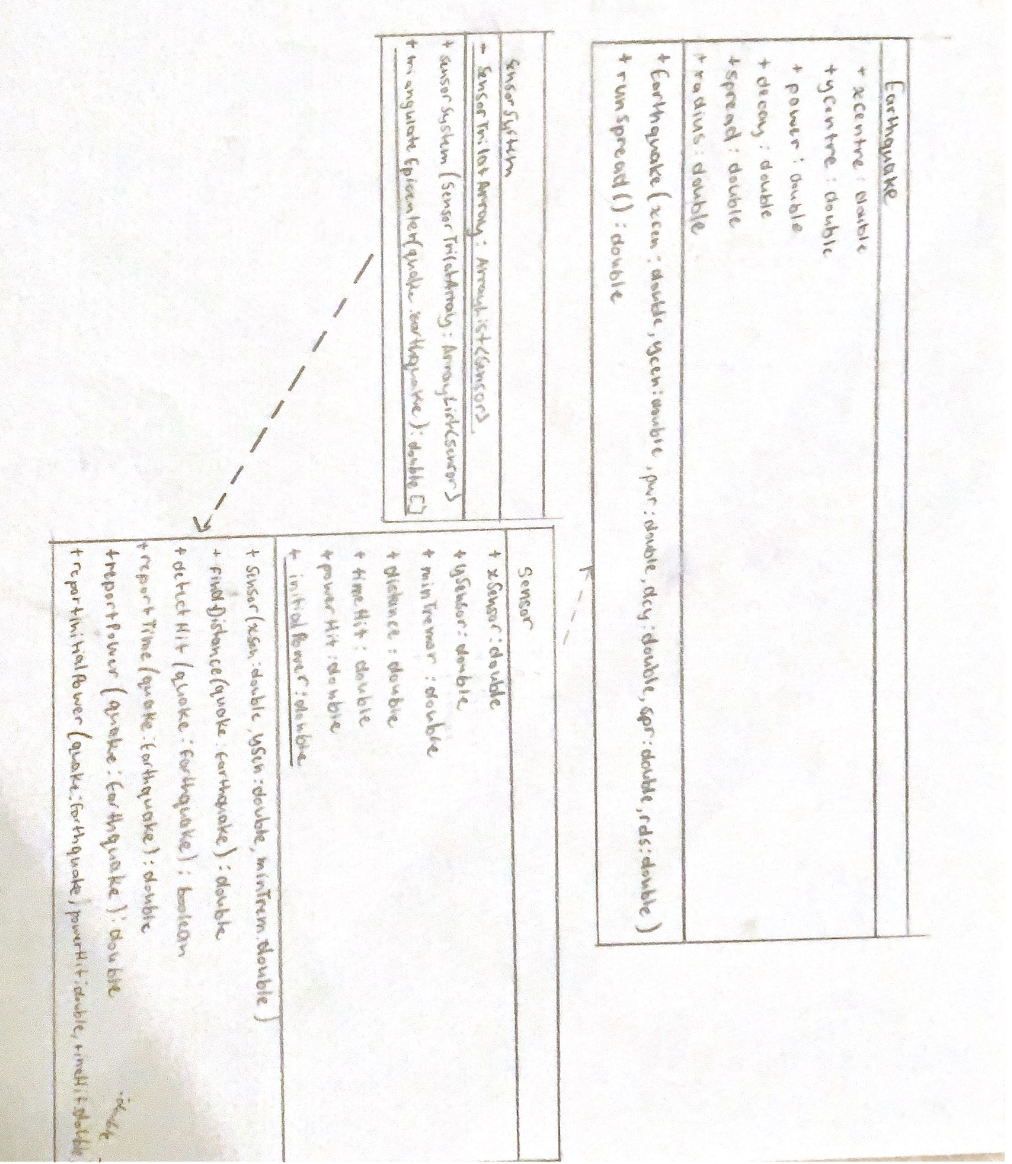 Earthquake
+ xcentre : double
+ ycentre : double
+ power : double
+ decay : double
+ spread : double
+ radius : double
+ Earthquake (xcen : double, ycen : double, pwr : double, dcy : double, spr : double, rds : double)
+ runSpread() : double
SensorSystem
+ SensorTrilatArray : ArrayList<Sensor>
+ sensorSystem (SensorTrilatArray : ArrayList<sensor>)
+ triangulateEpicenter(quake : earthquake) : double []
Sensor
+ xSensor : double
+ ySensor : double
+ minTremor : double
+ distance : double
+ timeHit : double
+ powerHit : double
+ initialPower : double
+ Sensor (xsen : double, ysen : double, minTrem : double)
+ findDistance (quake : Earthquake) : double
+ detectHit (quake : Earthquake) : boolean
+ reportTime (quake : Earthquake) : double
+ reportPower (quake : Earthquake) : double
+ reportInitialPower (quake : Earthquake, powerHit : double, timeHit : double